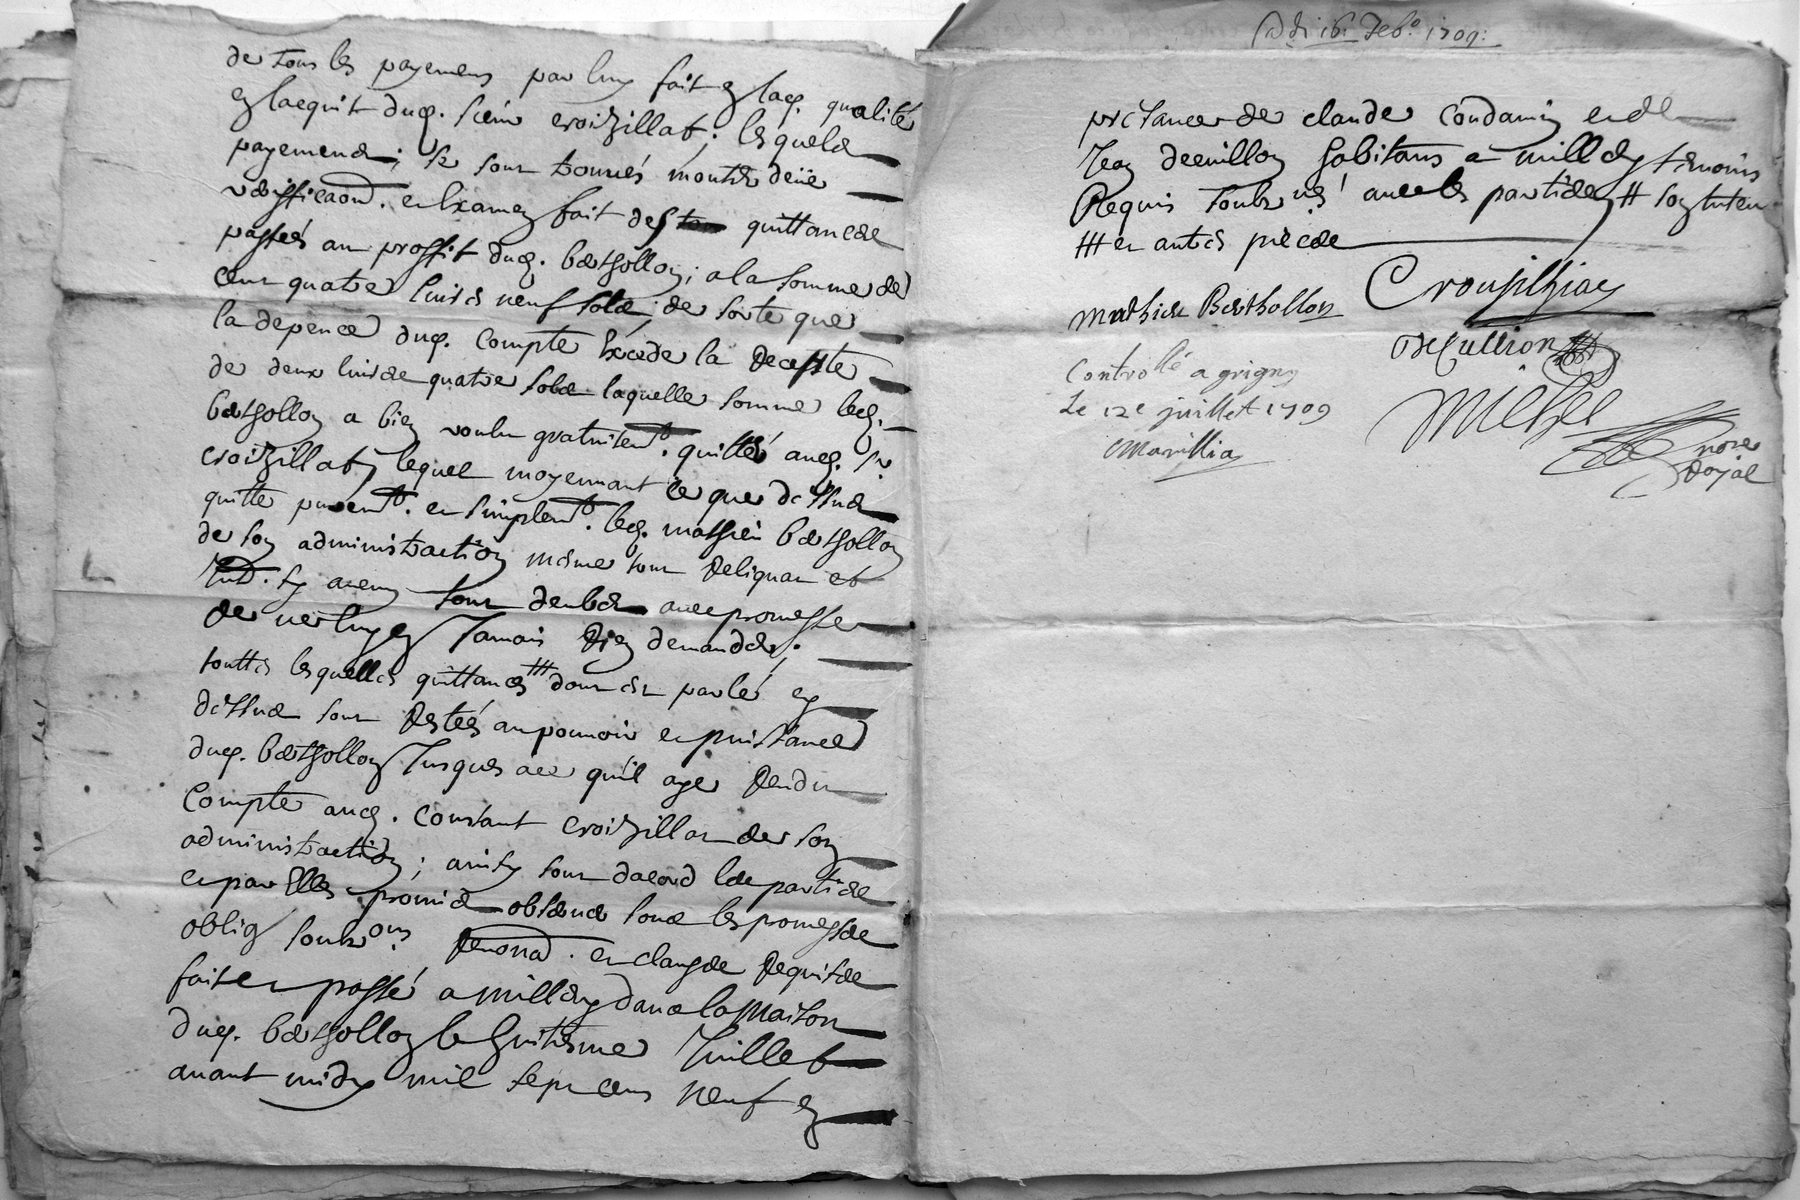 de tous les payemens par luy fait en lad. qualité
en lacquit dud. sieur croizillat ; lesquels
payemens ; se sont trouvés monter deüe
veriffica͠on . et Examen fait des quittances
passées au proffit dud. berthollon ; a la somme de
cent quatre livres neuf sols ; de sorte que
la depence dud. compte Excede la Recepte
de deux livres quatre sols laquelle somme led.
berthollon a bien voulu gratuitemt. quitter aud. sr.
croizillat lequel moyennant ce que dessus
quitte puremt. et simplemt. led. mathieu berthollon
de son administraction mesme tout Reliquat et
sy aucun sont deubts avec promesse
de ne luy en Jamais Rien demander .
touttes lesquelles quittances ##| dont est parlé cy
dessus sont Restés au pouvoir et puissance
dud. berthollon Jusques a ce qu'il aye Rendu
Compte aud. constant croizillat de son
administraction ; ainsy sont dacord les parties
et par Elles promis observer sous les promesses
oblig soubzons. Renona͠ . et clauses Requises
fait et passé a millery dans la Maison
dud. berthollon le huitiesme Juillet
avant midy mil sept cens neuf en
Adi 16. Feb.o 1709:
presance de claude Condamin et de
Jean decuillon habitans a millery temoins
Requis soubznés avec les parties # son tuteur
## et autres pièces
Croupilhiac
Mathieu Berthollon
decullion
Controllé a grigny
Le 12e juillet 1709
Michel
Marillia
nore
Royal